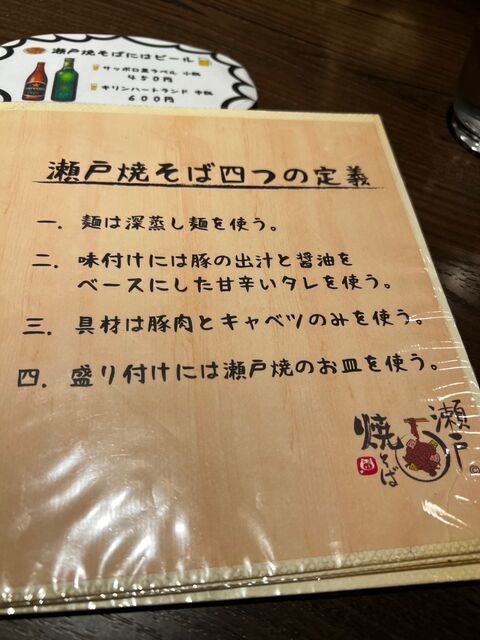 瀬戸焼そばにはビール
サッポロ黒ラベル 小瓶
450円
キリンハートランド 中瓶
600円
瀬戸焼そば四つの定義
一. 麺は深蒸し麺を使う。
二. 味付けには豚の出汁と醤油を
ベースにした甘辛いタレを使う。
三. 具材は豚肉とキャベツのみを使う。
四. 盛り付けには瀬戸焼のお皿を使う。
瀬戸
焼そば